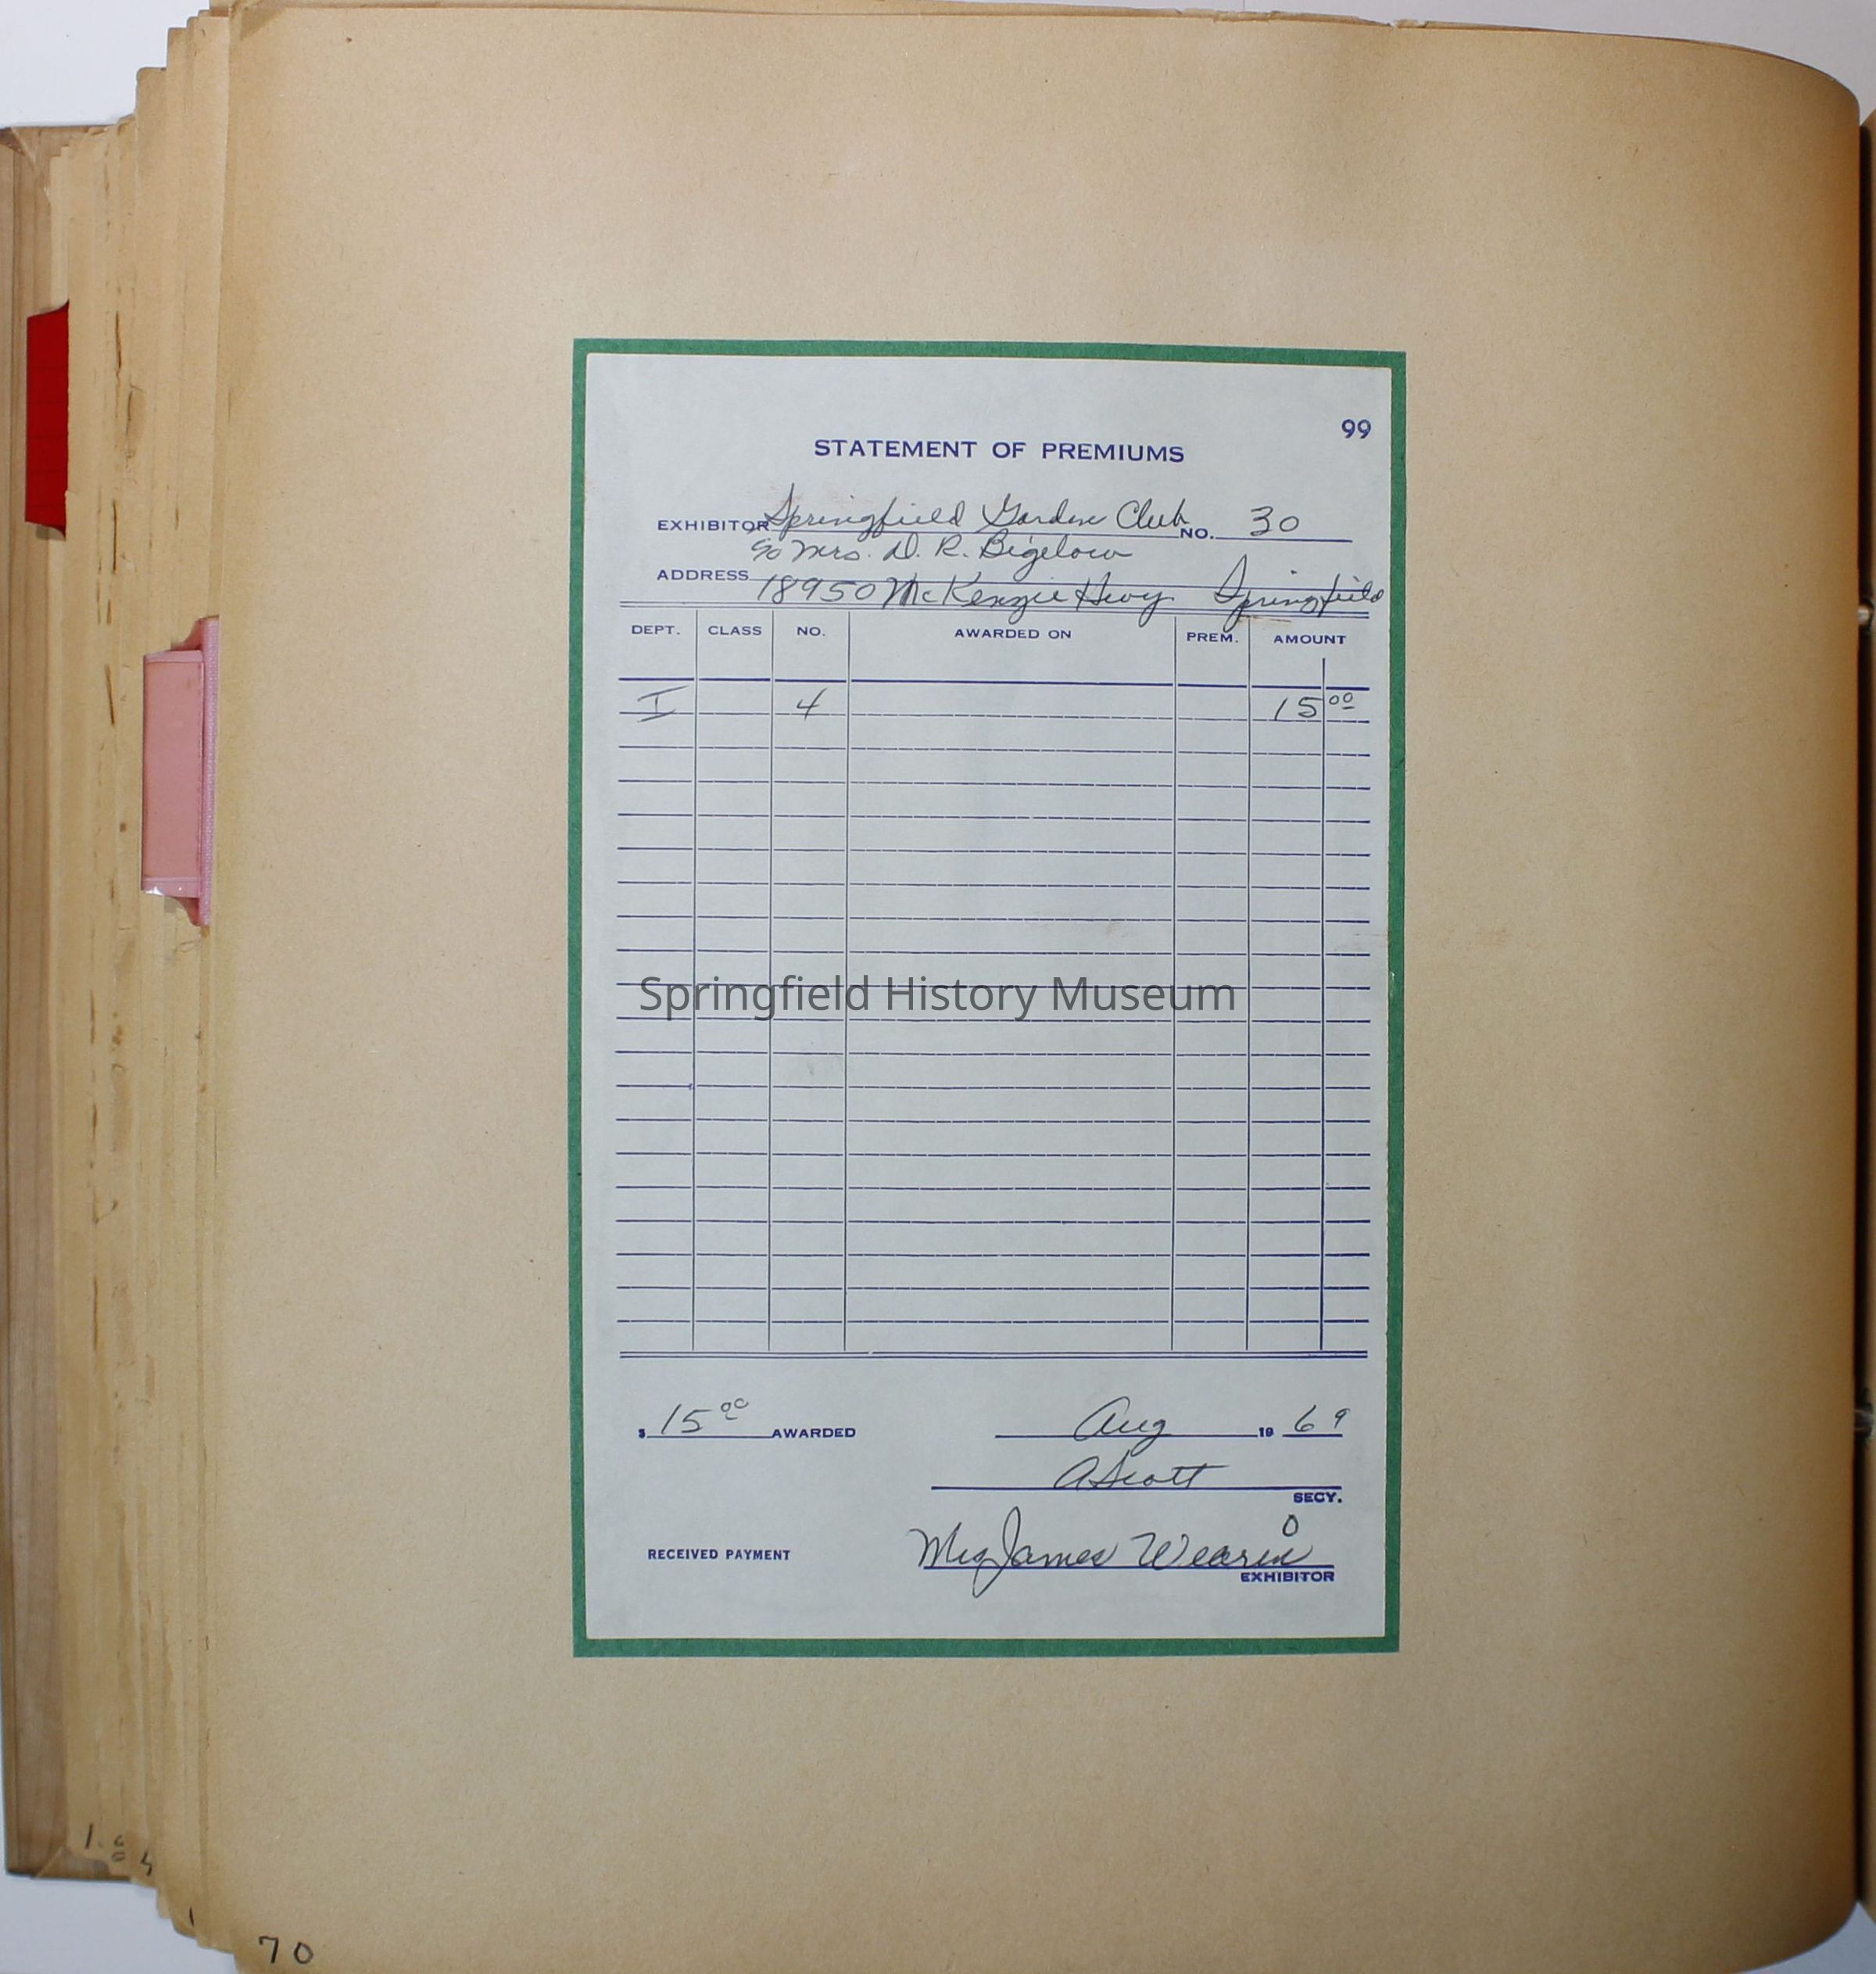 99
STATEMENT OF PREMIUMS
EXHIBITOR Springfield Garden Club NO. 30
c/o Mrs. D. R. Bigelow
ADDRESS 18950 McKenzie Hwy. Springfield
DEPT. CLASS NO. AWARDED ON PREM. AMOUNT
I 4 15 00
Springfield History Museum
$ 15 00 AWARDED Aug 19 69
A Scott
SECY.
RECEIVED PAYMENT Mrs James Wearin
EXHIBITOR
70